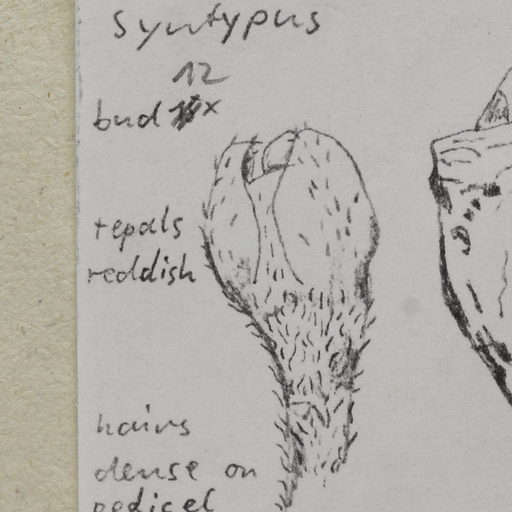 Syntypus
12
bud x
tepals
reddish
hairs
dense on
pedicel